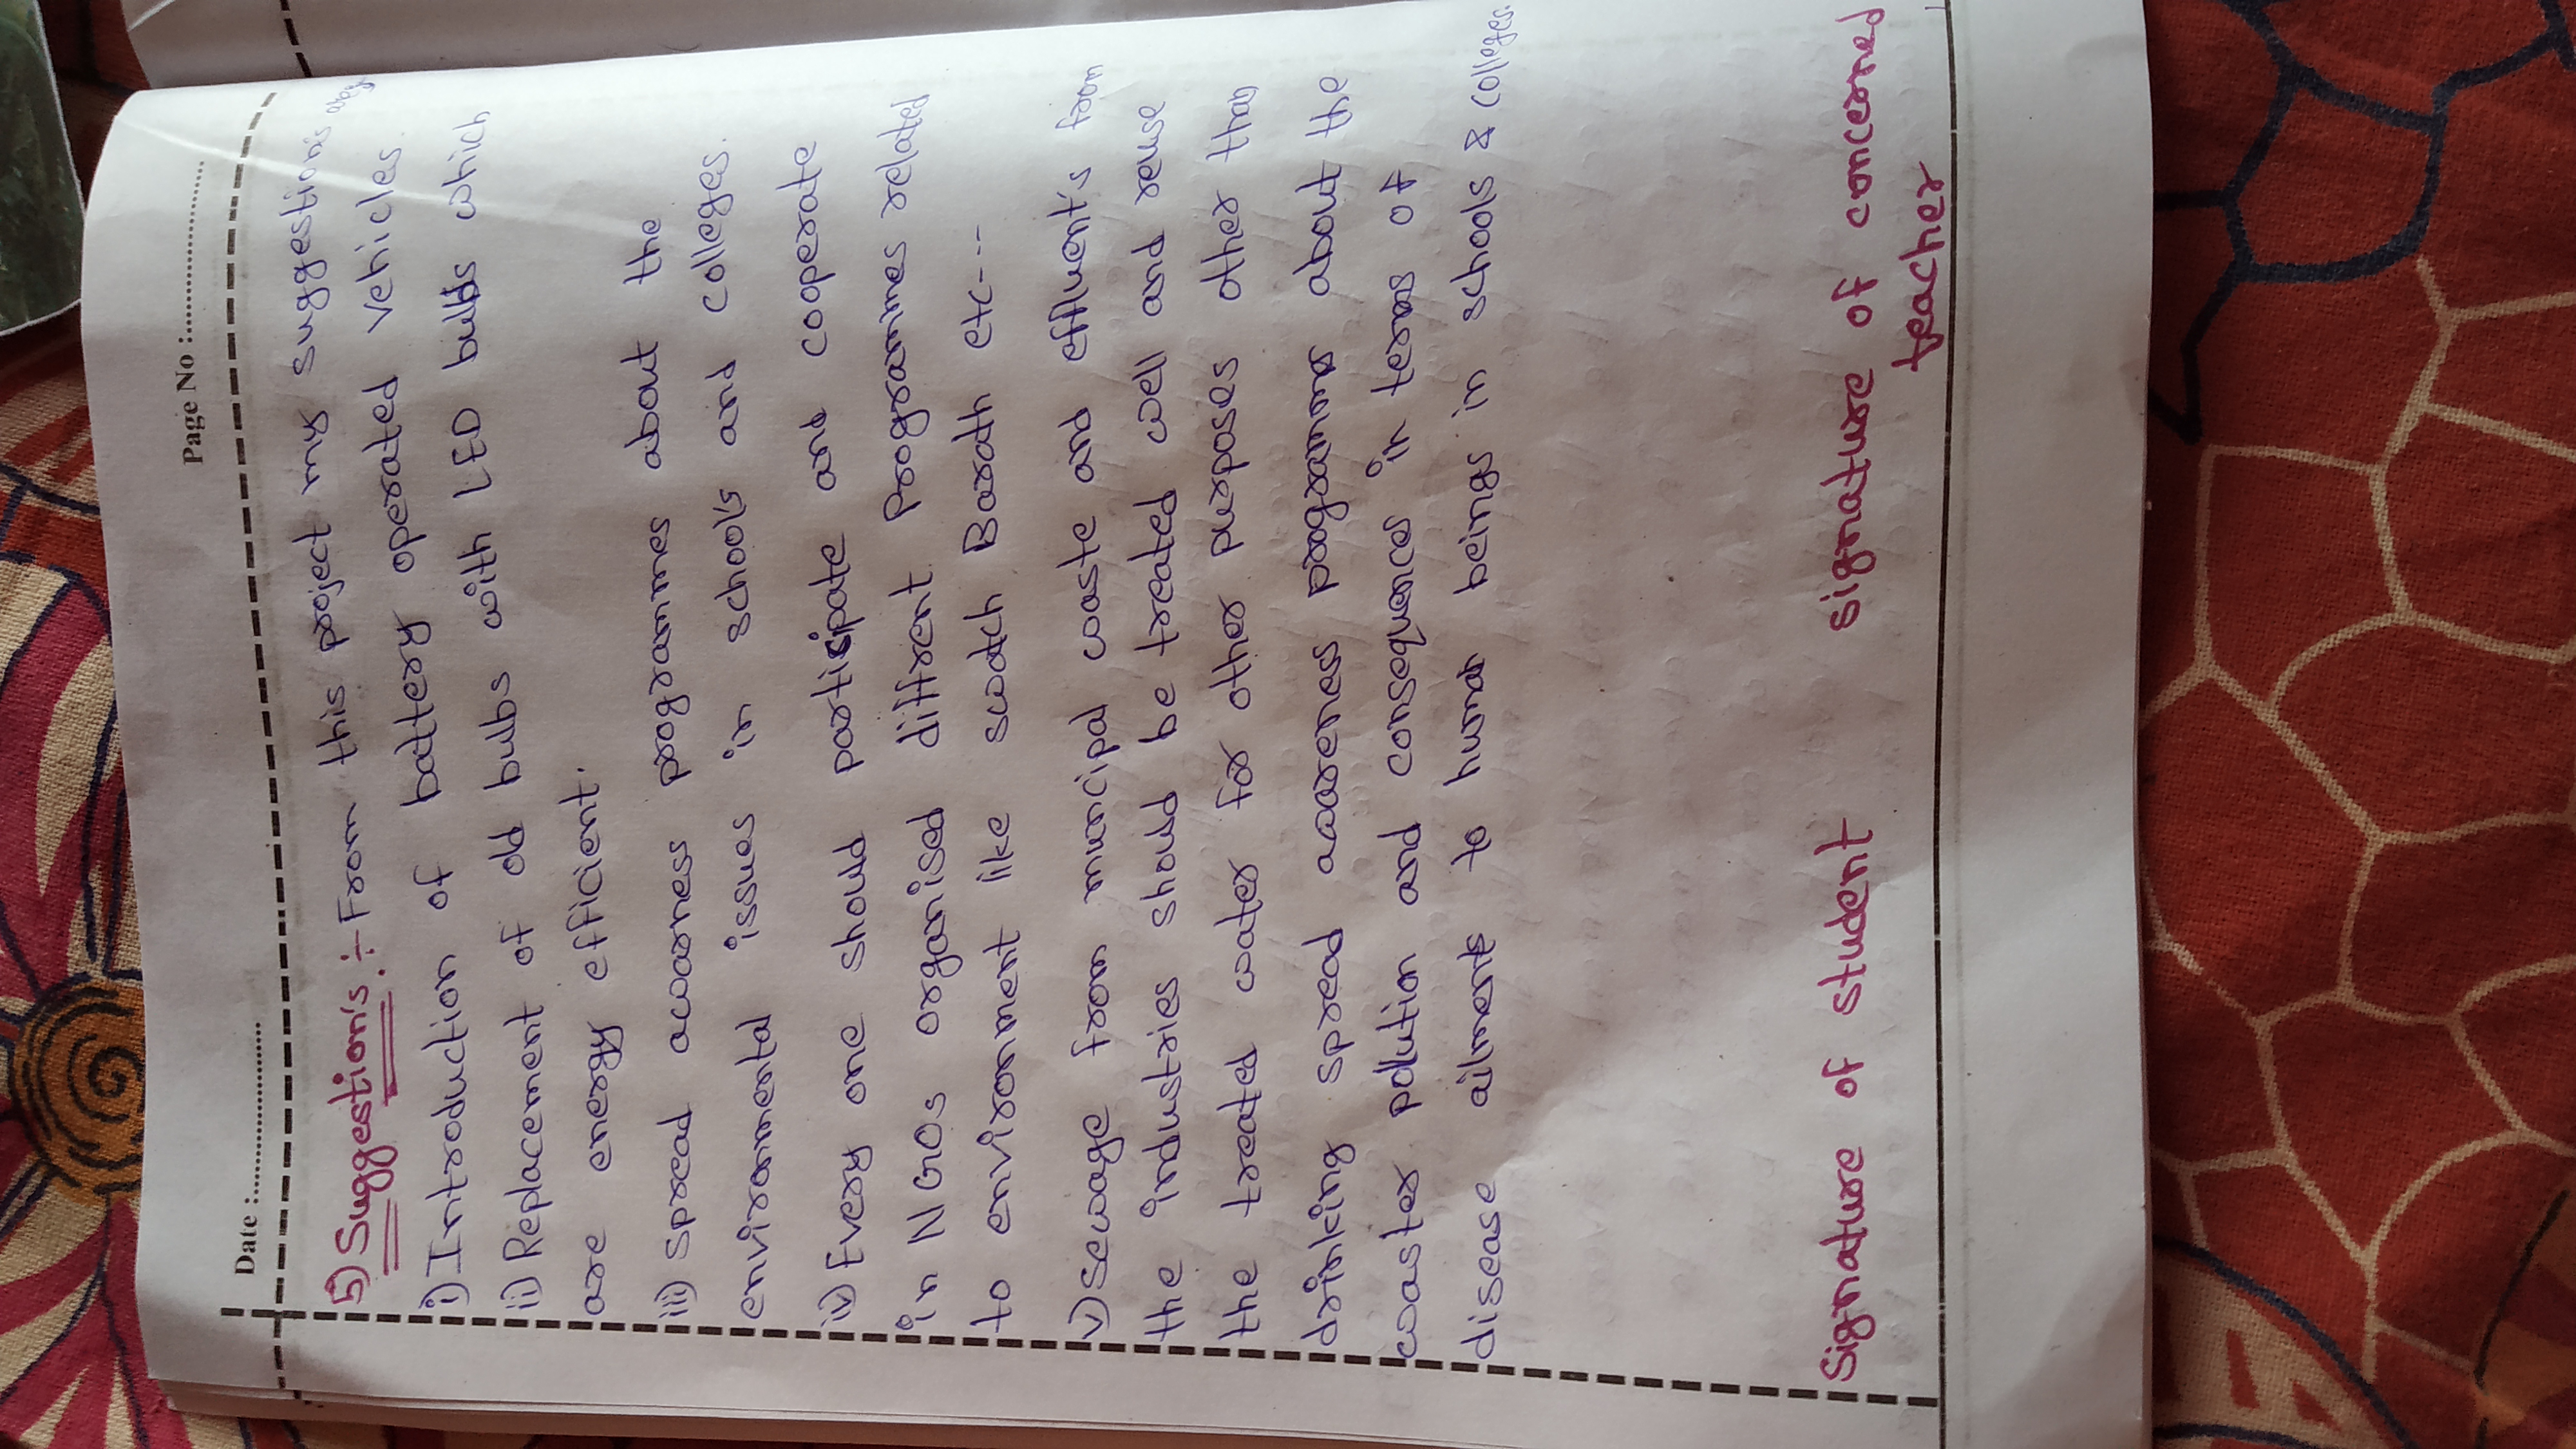 Date :........................ Page No :........................
5) Suggestion's :- From this project my suggestions are
i) Introduction of battery operated vehicles.
ii) Replacement of old bulbs with LED bulbs which
are energy efficient.
iii) Spread awarness programmes about the
environmental issues in schools and colleges.
iv) Every one should participate and cooperate
in NGOs organised diffrent programmes related
to environment like swatch Barath etc---
v) Sewage from muncipal waste and effluent's from
the industries should be treated well and reuse
the treated water for other purposes other than
drinking spread awarenes programms about the
waster pollution and consequences in terms of
disease ailments to human beings in schools & colleges.
Signature of student signature of concerned
teacher